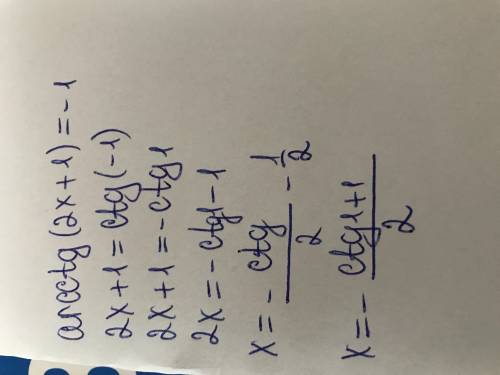 arcctg(2x+1)=-1
2x+1=ctg(-1)
2x+1=-ctg1
2x=-ctg1-1
x=-ctg/2-1/2
x=-ctg1+1/2